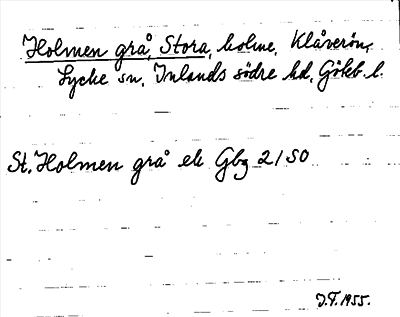 Holmen grå, Stora, holme, Klåverön,
Lycke sn, Inlands södre hd, Göteb. l.
St. Holmen grå ek Gbg 2150
J.T. 1955.